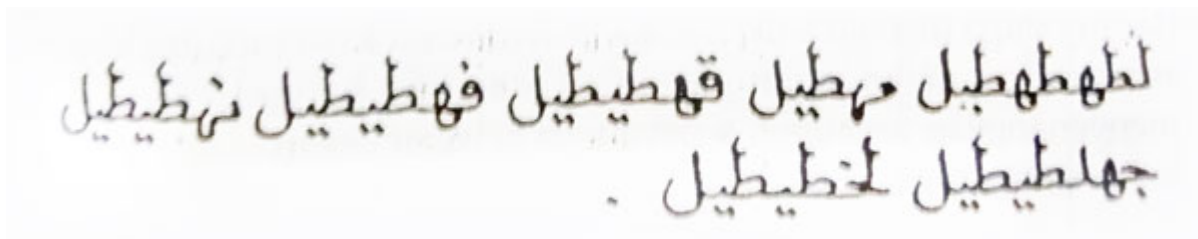 لطهطهطيل مهطيل قهطيطيل فهطيطيل نهططيل
جهلطيطيل لخطيطيل .